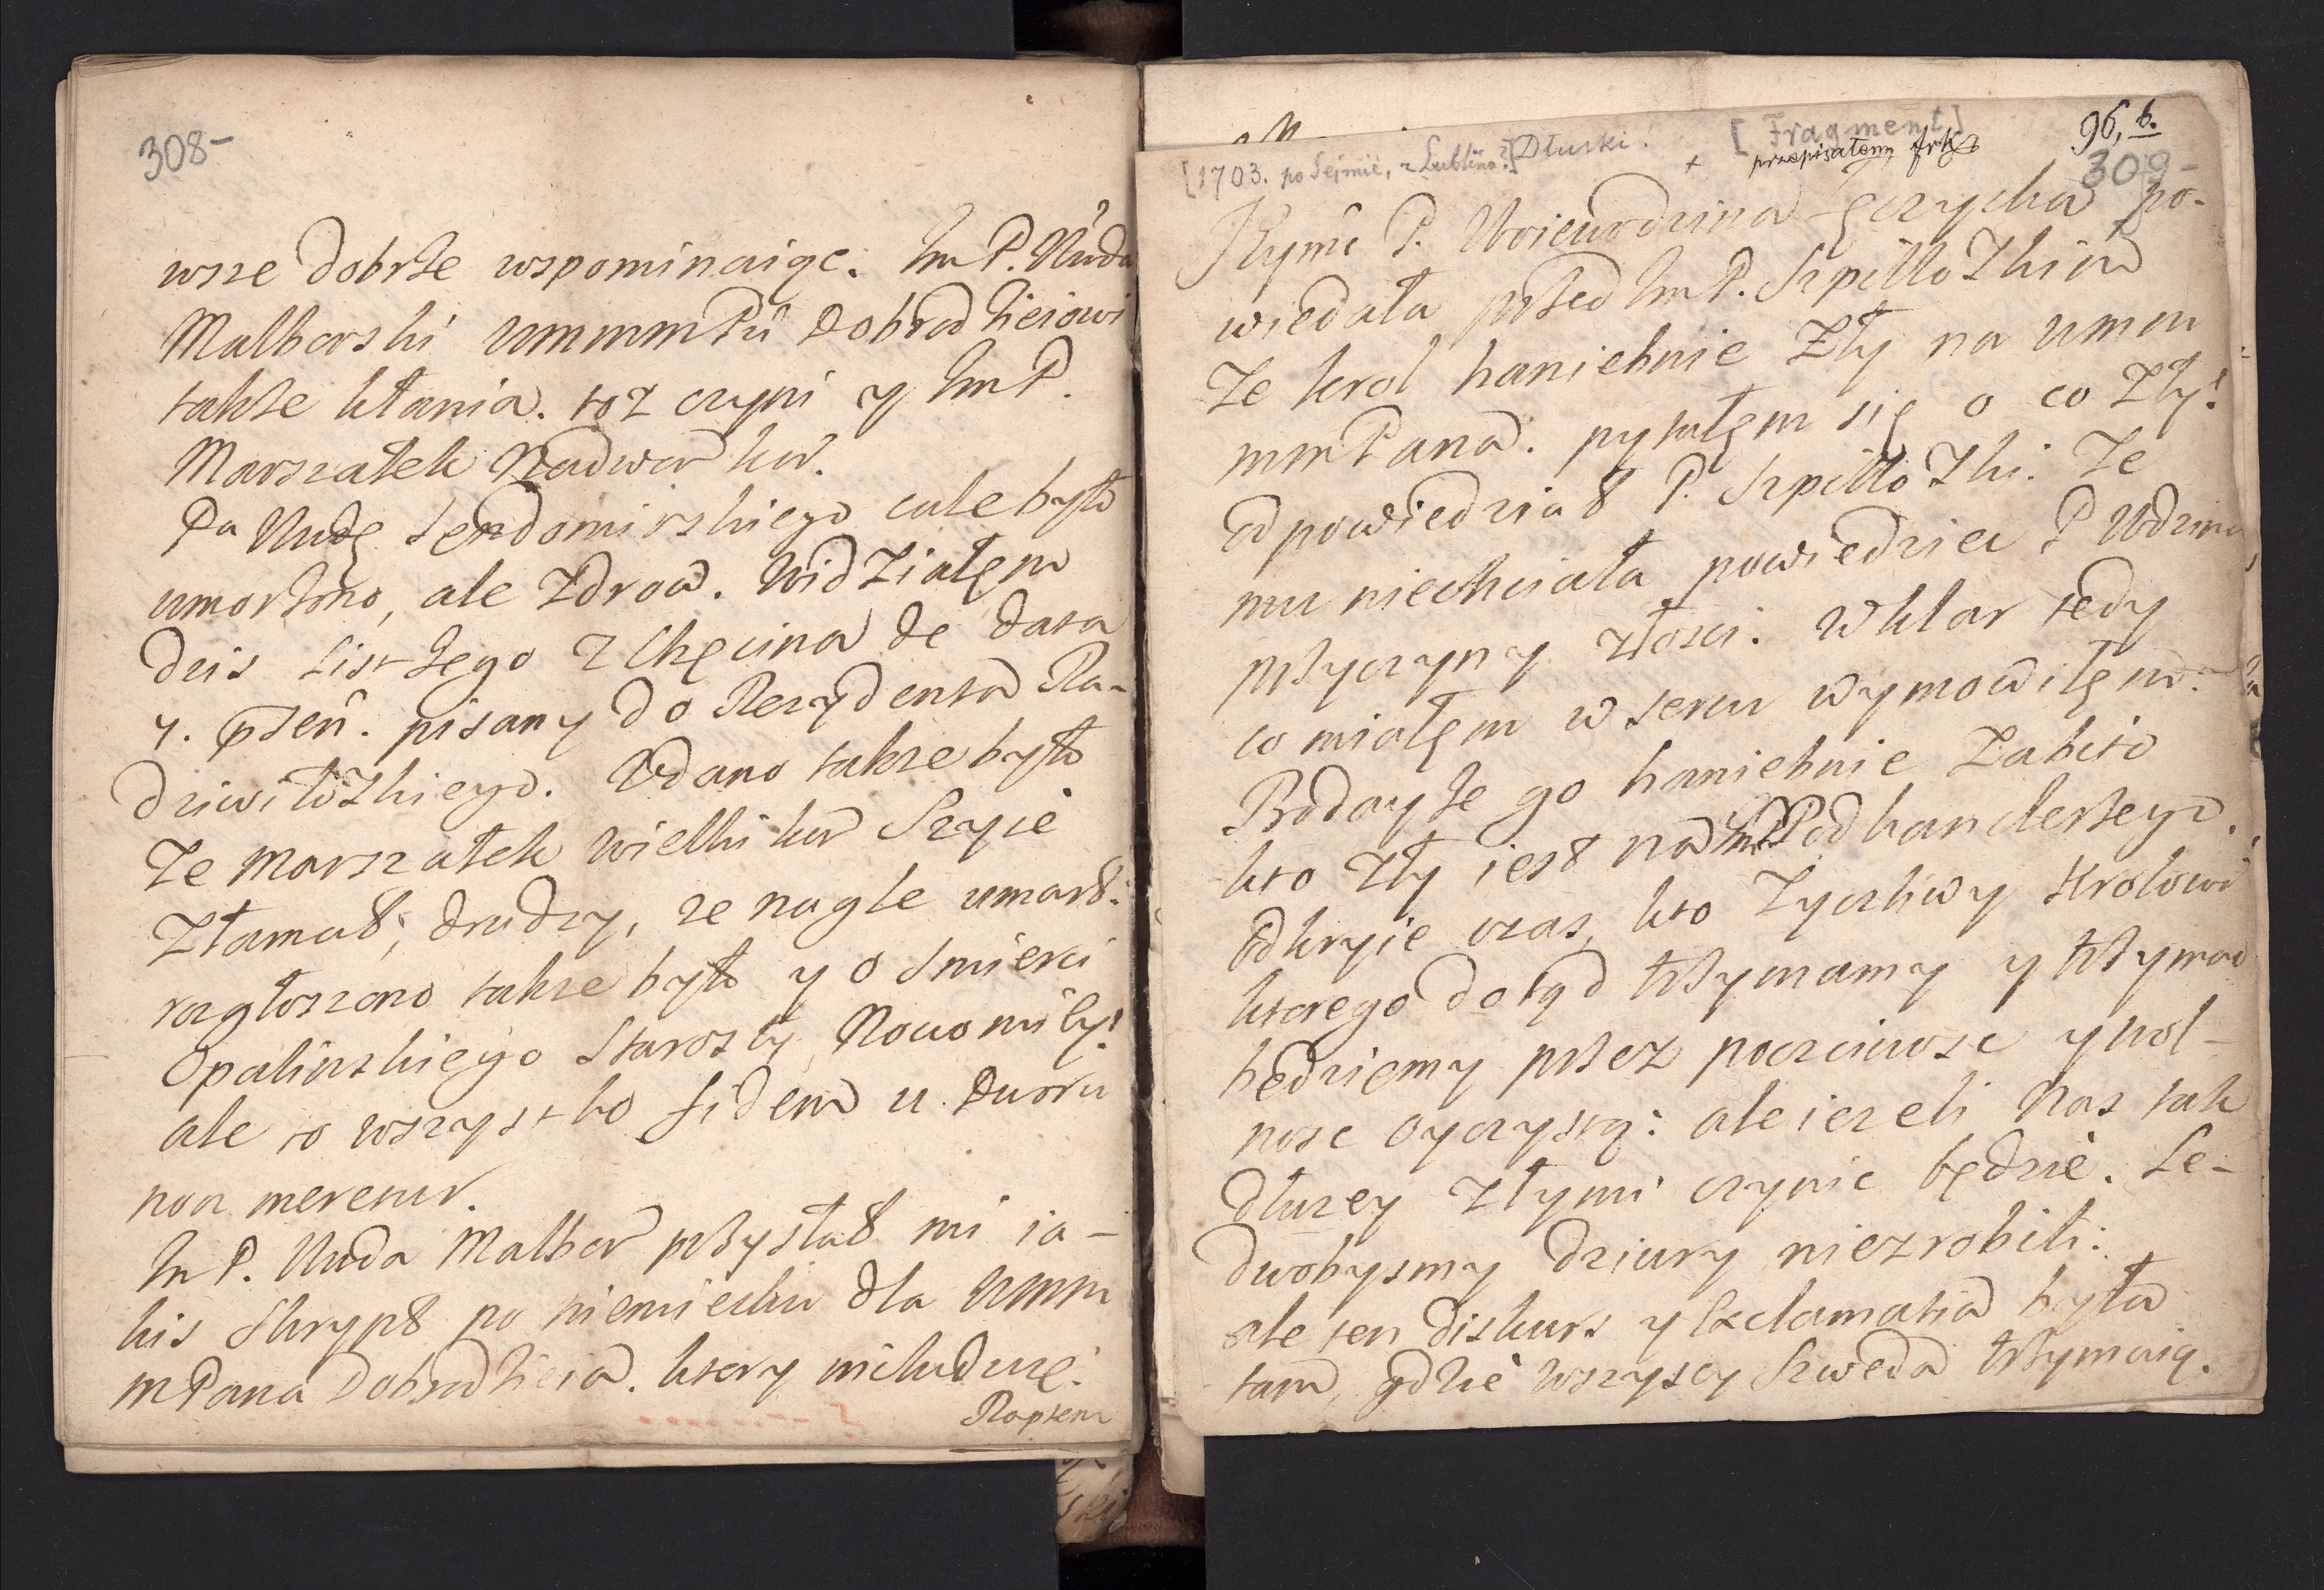 308-
wsze dobrze wspominaiąc. Im P. Wwda
Malborski WMMM Pu Dobrodzieiowi
także kłania. toż czyni y Im P.
Marszałek Nadwor kor.
Pa Wwdę Sendomirskiego cale było
umorzono, ale zdrow. Widziałęm
dzis list Jego z Chęcina de data
pisany do Rezydenta Ra-
dziwiłozkiego. Udano takze było
że Marszałek Wielki kor Szyię
złamał; drudzy, ze nagle umarł.
rozgłoszono takze było y o Smierci
Opalinskiego Starosty Nowomi
ale to wszystko fidem u Dworu
non meretur.
Im P. Wwda Malbor przysłał mi ia-
kis Skrypt po niemiecku dla WMM
MPana Dobrodzieia. ktory includuię.
Raptem
[1703. po Sejmie, z Lublina?] Dłuski!
[Fragment]
+ przepisałem
96, b.
309-
P. Woiewodzina Łęczycka po-
wiedała przed Im P. Szpiłłozkim
że krol haniebnie zły na WMM
MMPana. pytałęm się o co zły?
odpowiedział P. Szpiłłozki. że
mu niechciała powiedziec P Wdzina
przyczyny złosci. W klar tedy
co miałęm w sercu wymowiłęm.
Bodayże go haniebnie zabito
kto zły iest na Im P Podkanclerzego.
odkryie czas, kto życzliwy Krolowi
ktorego dotąd trzymamy y trzymac
będziemy przez poczciwosc y wol-
nosc oyczystą: ale iezeli nas tak
dłuzey złymi czynic będzie. Le-
dwobysmy dziury niezrobili:
ale ten diskurs y Exclamatia była
tam, gdzie wszyscy Szweda trzymaią.